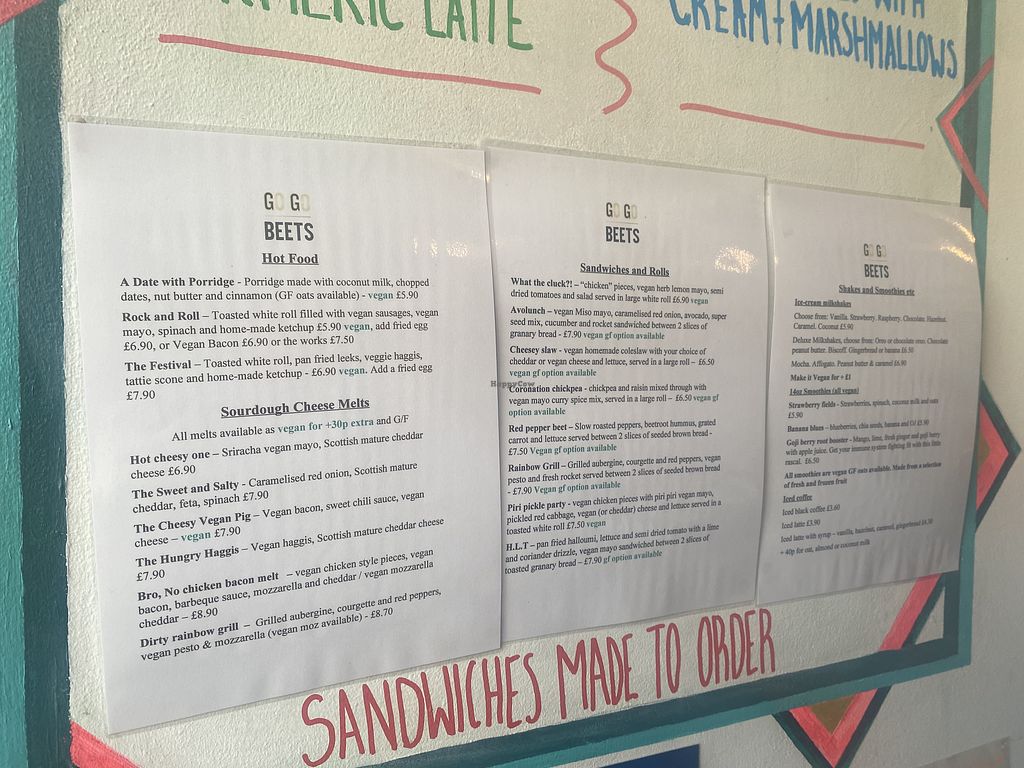 TURMERIC LATTE
WITH
CREAM + MARSHMALLOWS
GO GO
BEETS
Hot Food
A Date with Porridge - Porridge made with coconut milk, chopped
dates, nut butter and cinnamon (GF oats available) - vegan £5.90
Rock and Roll – Toasted white roll filled with vegan sausages, vegan
mayo, spinach and home-made ketchup £5.90 vegan, add fried egg
£6.90, or Vegan Bacon £6.90 or the works £7.50
The Festival – Toasted white roll, pan fried leeks, veggie haggis,
tattie scone and home-made ketchup - £6.90 vegan. Add a fried egg
£7.90
Sourdough Cheese Melts
All melts available as vegan for +30p extra and G/F
Hot cheesy one – Sriracha vegan mayo, Scottish mature cheddar
cheese £6.90
The Sweet and Salty - Caramelised red onion, Scottish mature
cheddar, feta, spinach £7.90
The Cheesy Vegan Pig – Vegan bacon, sweet chili sauce, vegan
cheese – vegan £7.90
The Hungry Haggis – Vegan haggis, Scottish mature cheddar cheese
£7.90
Bro, No chicken bacon melt – vegan chicken style pieces, vegan
bacon, barbeque sauce, mozzarella and cheddar / vegan mozzarella
cheddar – £8.90
Dirty rainbow grill – Grilled aubergine, courgette and red peppers,
vegan pesto & mozzarella (vegan moz available) - £8.70
GO GO
BEETS
Sandwiches and Rolls
What the cluck?! – "chicken" pieces, vegan herb lemon mayo, semi
dried tomatoes and salad served in large white roll £6.90 vegan
Avolunch – vegan Miso mayo, caramelised red onion, avocado, super
seed mix, cucumber and rocket sandwiched between 2 slices of
granary bread - £7.90 vegan gf option available
Cheesey slaw - vegan homemade coleslaw with your choice of
cheddar or vegan cheese and lettuce, served in a large roll – £6.50
vegan gf option available
HappyCow
Coronation chickpea - chickpea and raisin mixed through with
vegan mayo curry spice mix, served in a large roll – £6.50 vegan gf
option available
Red pepper beet – Slow roasted peppers, beetroot hummus, grated
carrot and lettuce served between 2 slices of seeded brown bread -
£7.50 Vegan gf option available
Rainbow Grill – Grilled aubergine, courgette and red peppers, vegan
pesto and fresh rocket served between 2 slices of seeded brown bread
- £7.90 Vegan gf option available
Piri pickle party - vegan chicken pieces with piri piri vegan mayo,
pickled red cabbage, vegan (or cheddar) cheese and lettuce served in a
toasted white roll £7.50 vegan
H.L.T – pan fried halloumi, lettuce and semi dried tomato with a lime
and coriander drizzle, vegan mayo sandwiched between 2 slices of
toasted granary bread – £7.90 gf option available
GO GO
BEETS
Shakes and Smoothies etc
Ice-cream milkshakes
Choose from: Vanilla. Strawberry. Raspberry. Chocolate. Hazelnut.
Caramel. Coconut £5.90
Deluxe Milkshakes, choose from: Oreo or chocolate oreo. Chocolate
peanut butter. Biscoff. Gingerbread or banana £6.50
Mocha. Affogato. Peanut butter & caramel £6.90
Make it Vegan for + £1
14oz Smoothies (all vegan)
Strawberry fields - Strawberries, spinach, coconut milk and oats
£5.90
Banana blues – blueberries, chia seeds, banana and OJ £5.90
Goji berry root booster - Mango, lime, fresh ginger and goji berry
with apple juice. Get your immune system fighting fit with this little
rascal. £6.50
All smoothies are vegan GF oats available. Made from a selection
of fresh and frozen fruit
Iced coffee
Iced black coffee £3.60
Iced latte £3.90
Iced latte with syrup – vanilla, hazelnut, caramel, gingerbread £4.30
+ 40p for oat, almond or coconut milk
SANDWICHES MADE TO ORDER